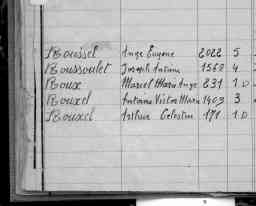 Boussel Ange Eugène 2022 5
Boussoulet Joseph Antoine 1568 4
Boux Marcel Marie Ange 831 1.D
Bouxel Antoine Victor Marie 1403 3
Bouxel Arthur Celestin 171 1.D